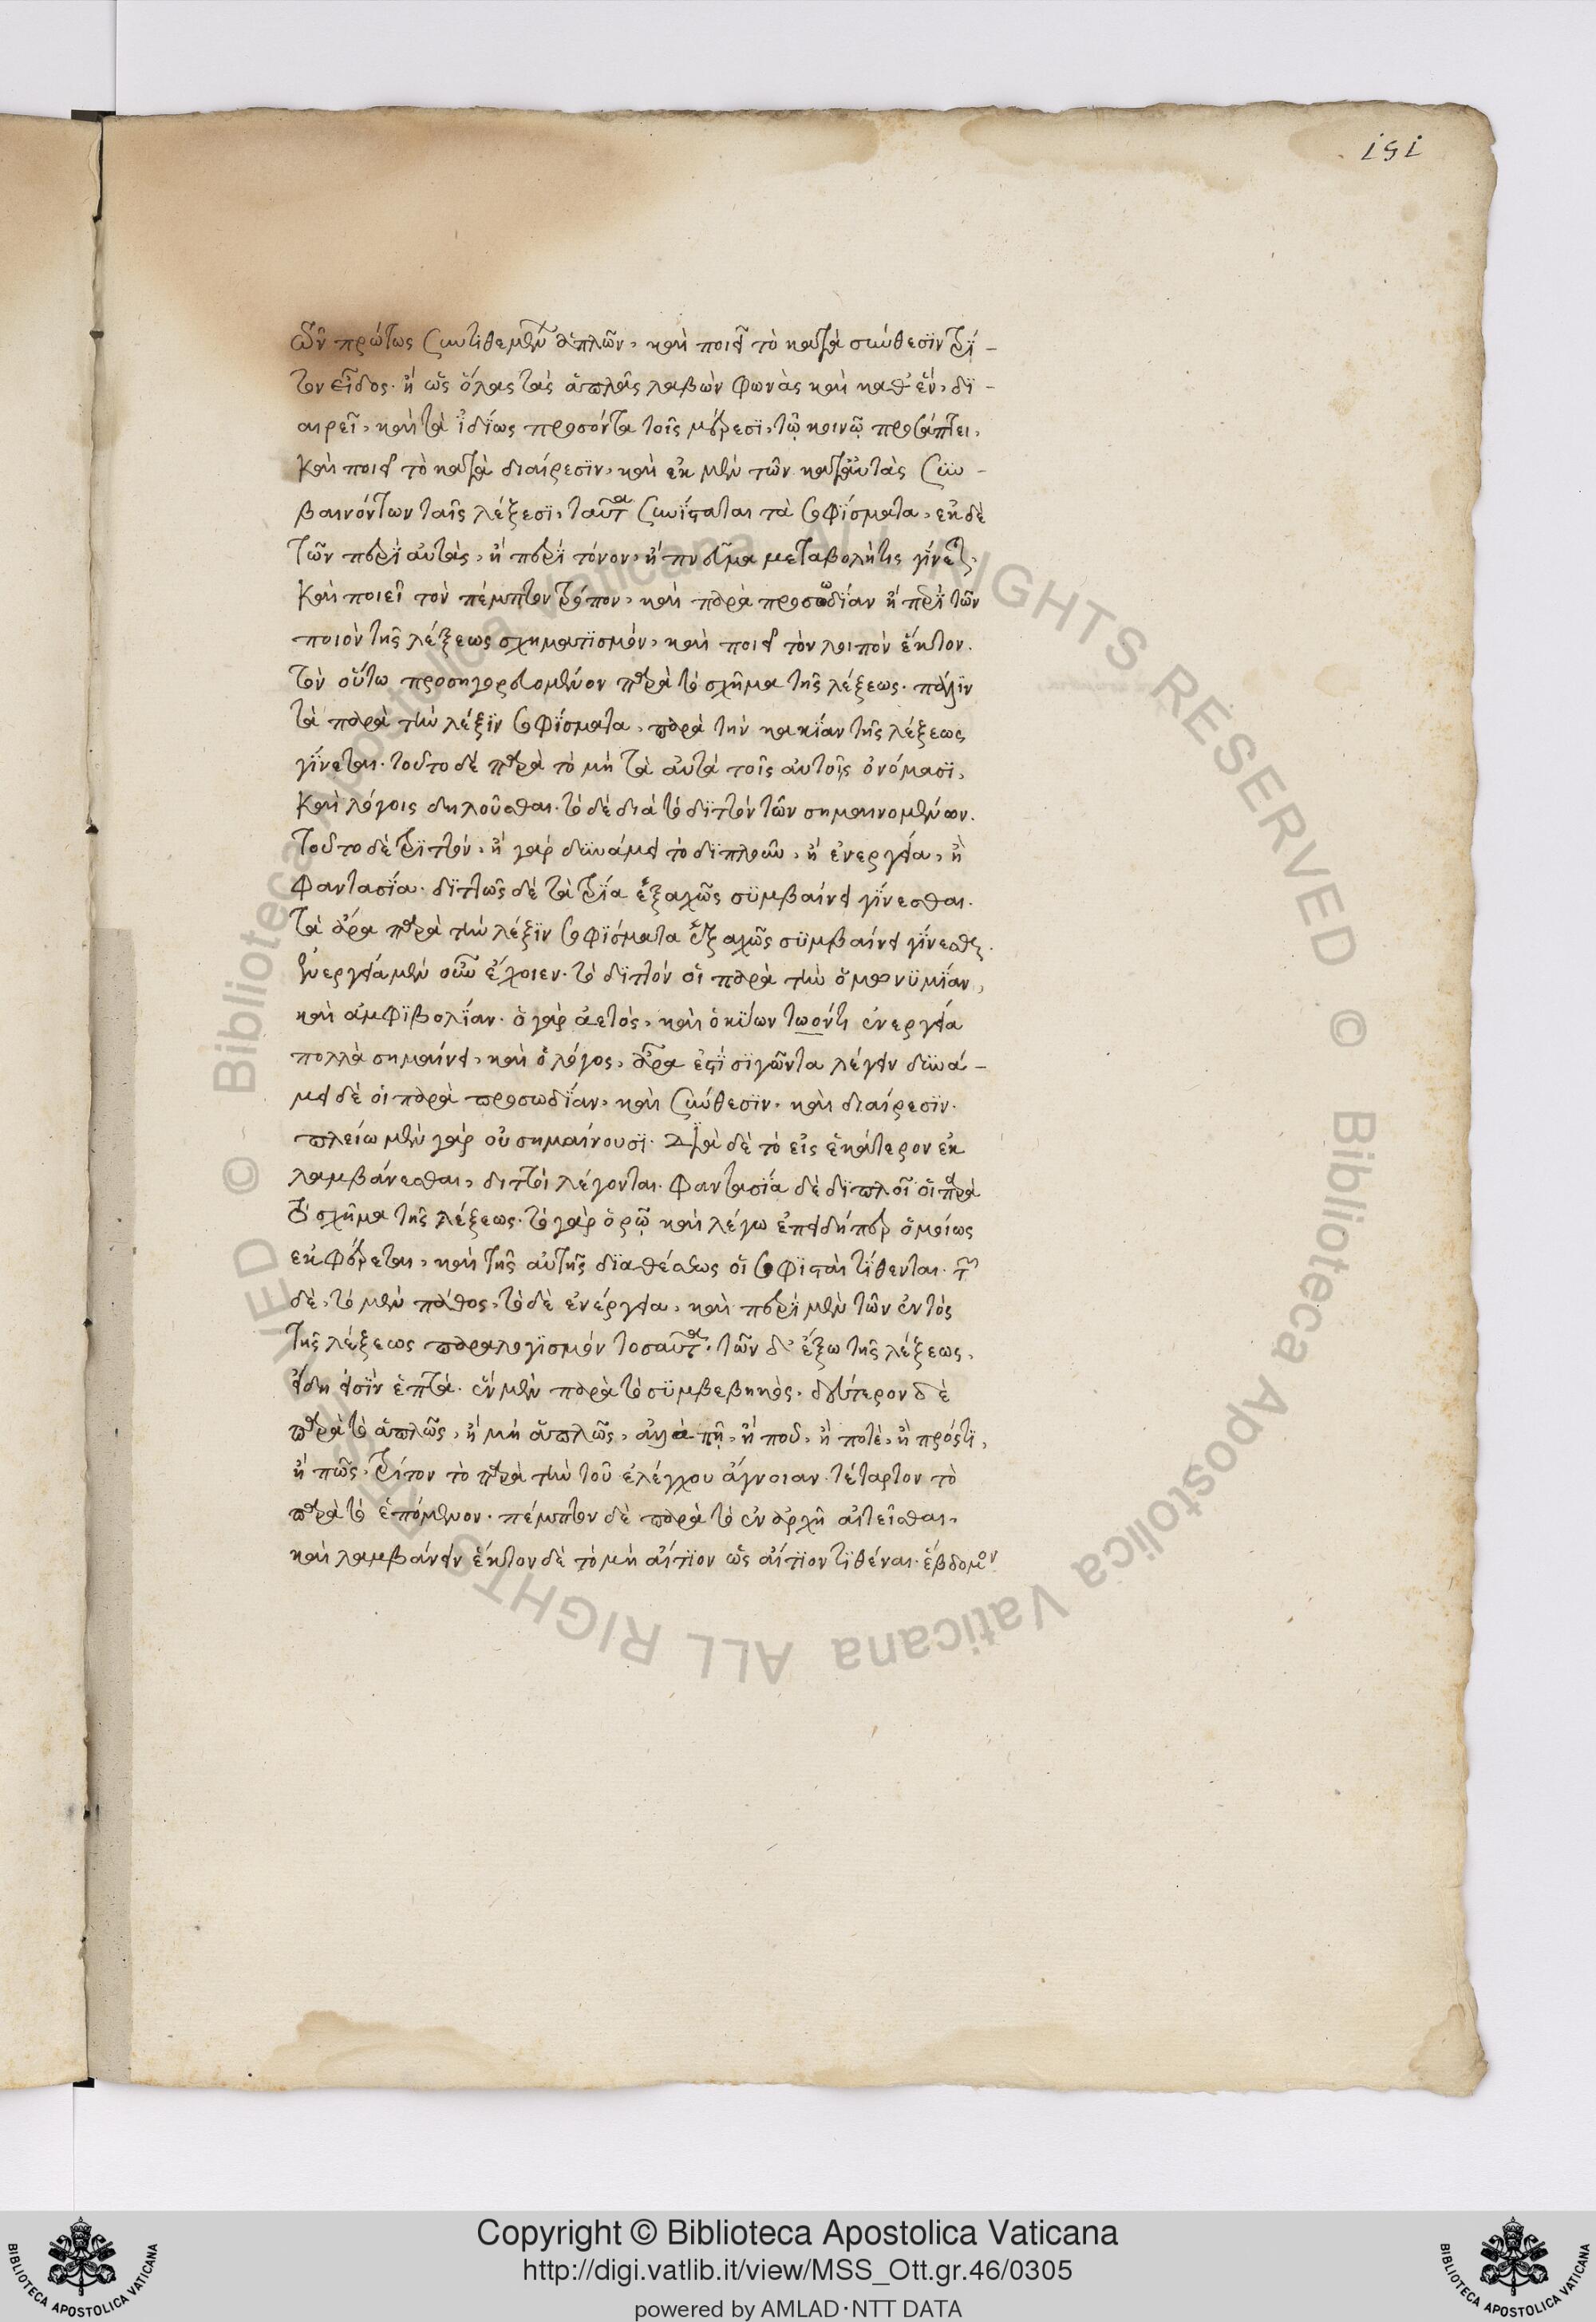 151
ὧν πρώτως συντιθεμένων ἁπλῶν, καὶ ποιεῖ τὸ κατὰ σύνθεσϊν τρί-
τον εἶδος. ἢ ὡς ὅλας τὰς ἁπλᾶς λαβὼν φωνὰς καὶ καθ' ἕν, δϊ-
αιρεῖ, καὶ τὰ ἰδίως προσόντα τοῖς μέρεσϊ, τῷ κοινῷ προσάπτει,
καὶ ποιεῖ τὸ κατὰ διαίρεσϊν, καὶ ἐκ μὲν τῶν κατ' αὐτὰς συμ-
βαινόντων ταῖς λέξεσϊ, ταῦτα συνίσταται τὰ σοφίσματα, ἐκ δὲ
τῶν περὶ αὐτὰς, ἢ περὶ τόνον, ἢ πνεῦμα μεταβολή τις γίνεται,
καὶ ποιεῖ τὸν πέμπτον τρόπον, καὶ παρὰ προσωδίαν ἢ περὶ τὸν
ποιὸν τῆς λέξεως σχηματϊσμόν, καὶ ποιεῖ τὸν λοιπὸν ἕκτον.
τὸν οὕτω προσηγορευόμενον παρὰ τὸ σχῆμα τῆς λέξεως. πάλϊν
τὰ παρὰ τὴν λέξϊν σοφίσματα, παρὰ τὴν κακίαν τῆς λέξεως
γίνεται. τοῦτο δὲ παρὰ τὸ μὴ τὰ αὐτὰ τοῖς αὐτοῖς ὀνόμασϊ,
καὶ λόγοις δηλοῦσθαι. τὸ δὲ διὰ τὸ δϊττὸν τῶν σημαινομένων.
τοῦτο δὲ τριττόν. ἢ γὰρ δϋνάμει τὸ δϊπλοῦν, ἢ ἐνεργεία, ἢ
φαντασία. δϊττῶς δὲ τὰ τρία ἑξαχῶς σϋμβαίνει γίνεσθαι.
τὰ ἄρα παρὰ τὴν λέξϊν σοφίσματα ἑξαχῶς σϋμβαίνει γίνεσθαι.
ἐνεργεία μὲν οὖν ἔχοιεν. τὸ δϊττὸν οἱ παρὰ τὴν ὁμωνϋμίαν,
καὶ ἀμφϊβολίαν. ὁ γὰρ ἀετὸς, καὶ ὁ κϋων τωοντι ἐνεργεία
πολλὰ σημαίνει, καὶ ὁ λόγος, ἆρα ἐστϊ σϊγῶντα λέγειν δυνά-
μει δὲ οἱ παρὰ προσωδίαν, καὶ σύνθεσϊν. καὶ διαίρεσϊν.
πλείω μὲν γὰρ οὐ σημαίνουσϊ. διὰ δὲ τὸ εἰς ἑκάτερον ἐκ
λαμβάνεσθαι, διττοὶ λέγονται. φαντασία δὲ δϊπλοῖ οἱ παρὰ
τὸ σχῆμα τῆς λέξεως. τὸ γὰρ ὁρῶ καὶ λέγω ἐπειδήπερ ὁμοίως
ἐκφέρεται, καὶ τῆς αὐτῆς δϊαθέσεως οἱ σοφϊσταὶ τίθενται.
δὲ, τὸ μὲν πάθος, τὸ δὲ ἐνέργεια, καὶ περὶ μὲν τῶν ἐντὸς
τῆς λέξεως παραλογϊσμόν τοσαῦτα. τῶν δ' ἔξω τῆς λέξεως,
εἴδη εἰσὶν ἑπτά. ἓν μὲν παρὰ τὸ σϋμβεβηκὸς. δεύτερον δὲ
παρὰ τὸ ἁπλῶς, ἢ μὴ ἁπλῶς, ἀλλὰ πῆ, ἢ ποῦ, ἢ ποτὲ, ἢ πρός τϊ,
ἢ πῶς. τρίτον τὸ παρὰ τὴν τοῦ ἐλέγχου ἄγνοιαν. τέταρτον τὸ
παρὰ τὸ ἑπόμενον. πέμπτον δὲ παρὰ τὸ ἐν ἀρχῇ αἰτεῖσθαι,
καὶ λαμβάνειν ἕκτον δὲ τὸ μὴ αἴτϊον ὡς αἴτϊον τϊθέναι. ἕβδομον
© Biblioteca Apostolica Vaticana ALL RIGHTS RESERVED © Biblioteca Apostolica Vaticana ALL RIGHTS RESERVED
Copyright © Biblioteca Apostolica Vaticana
http://digi.vatlib.it/view/MSS_Ott.gr.46/0305
powered by AMLAD·NTT DATA
BIBLIOTECA APOSTOLICA VATICANA
BIBLIOTECA APOSTOLICA VATICANA